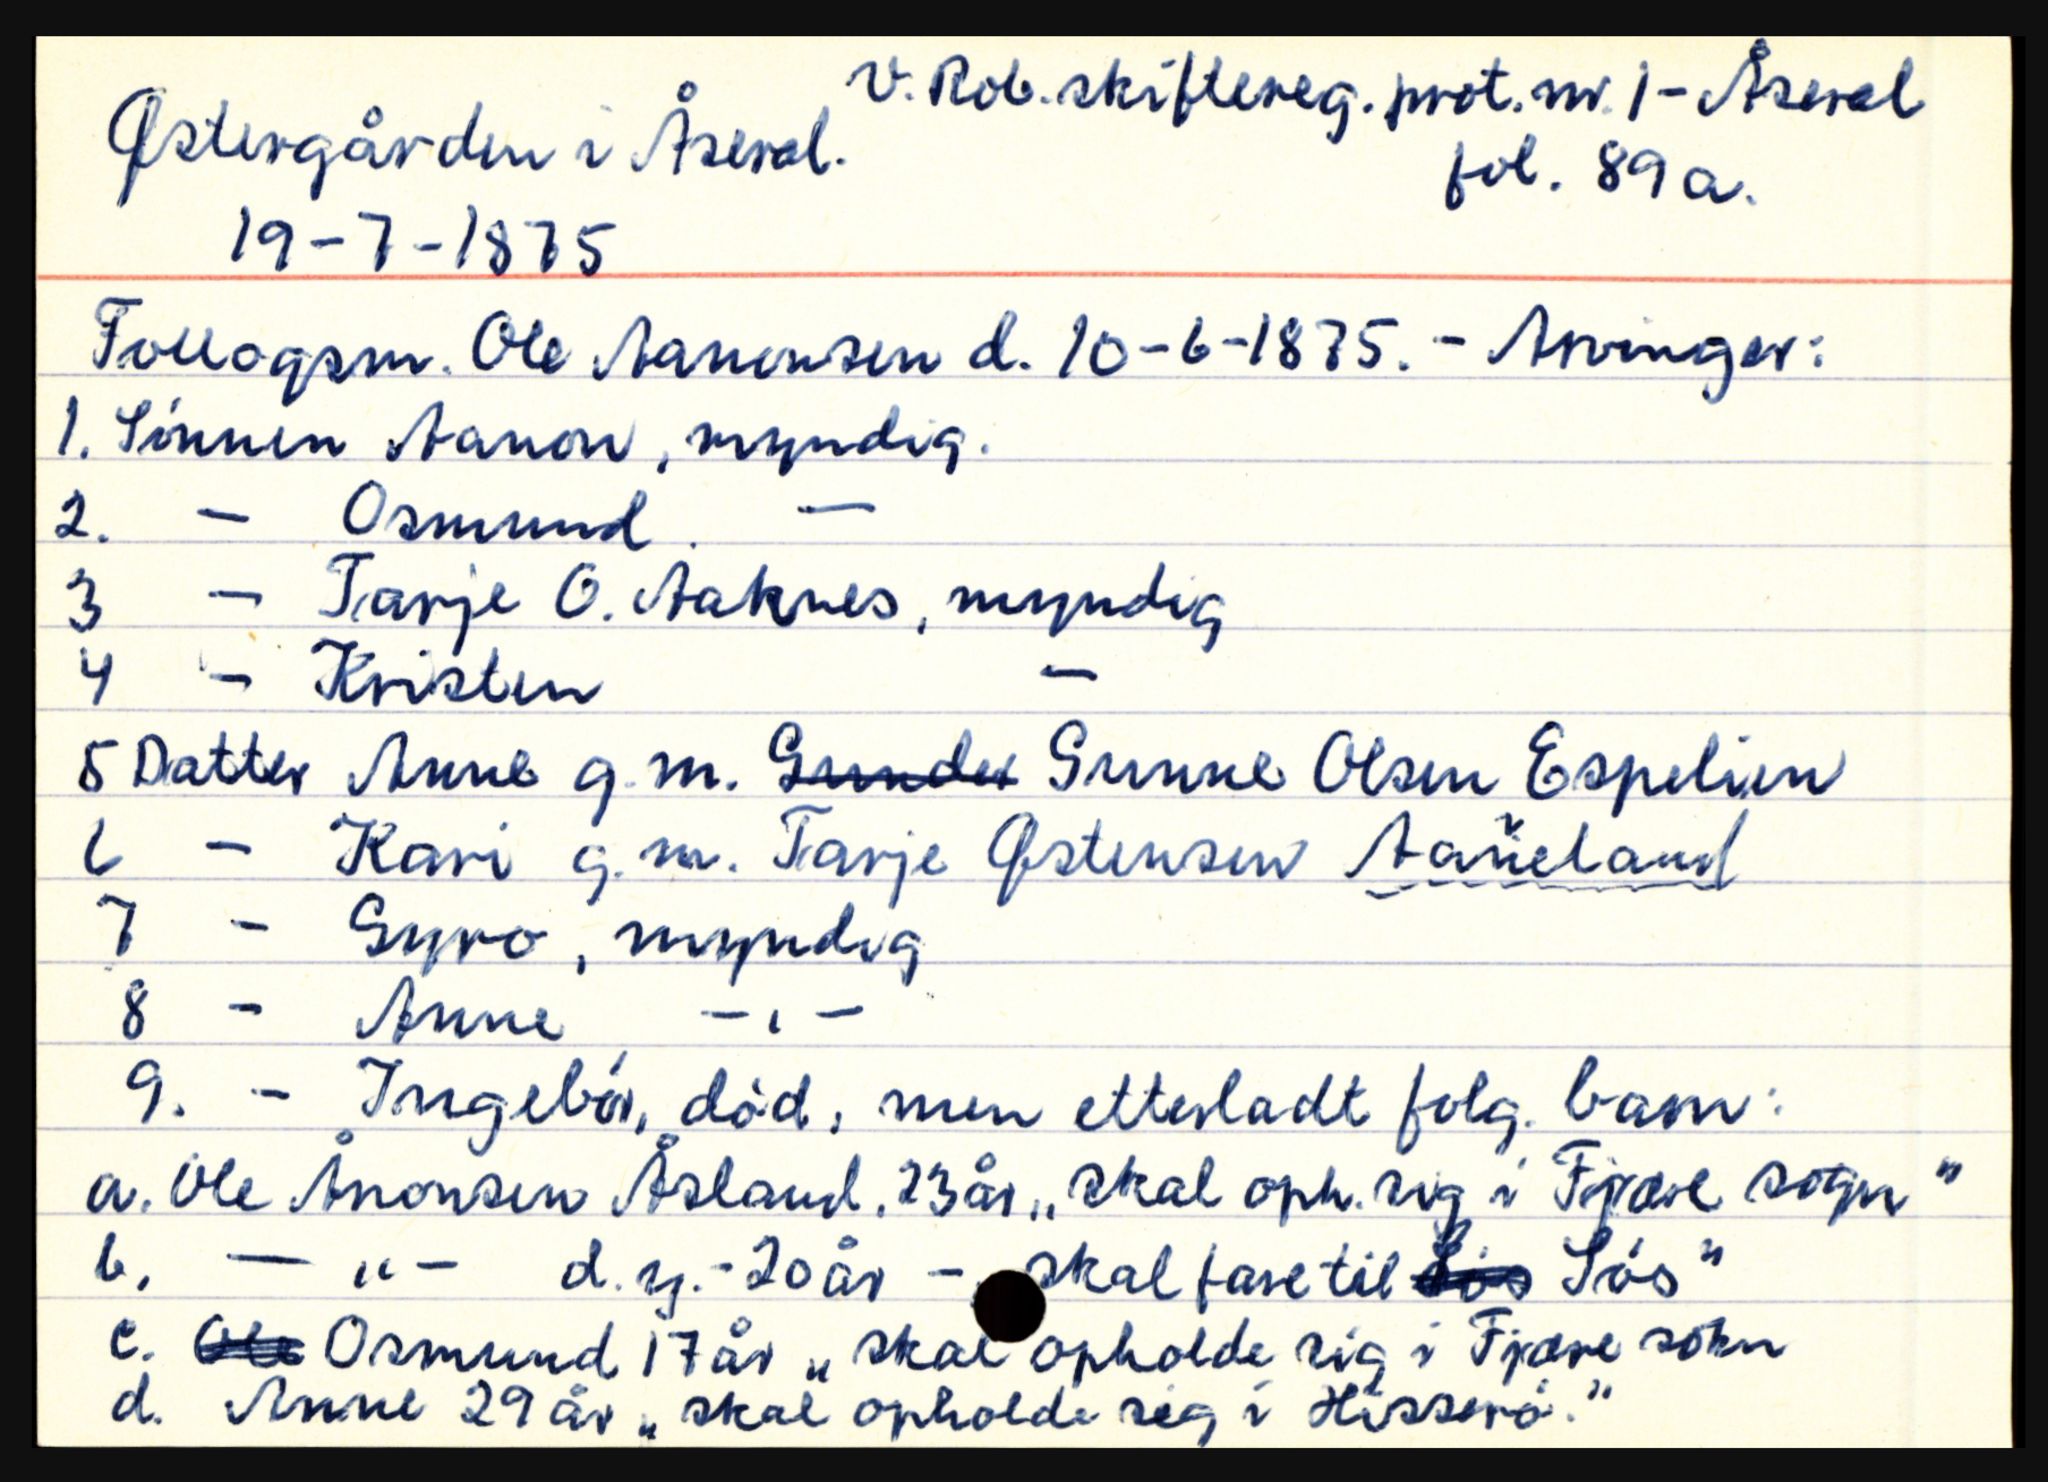 V. Rob. skiftereg. prot. nr. 1 - Åseral
Østergården i Åseral. fol. 89a.
19-7-1875
Follogsm. Ole Aanonsen d. 10-6-1875. - Arvinger:
1. Sönnen Aanon, myndig.
2. - Osmund. -
3 - Tarje O. Aaknes, myndig
4 - Kristen -
5 Datter Anne g.m. Gunder Gunne Olsen Espelien
6 - Kari g.m. Tarje Østensen Aaneland
7 - Gyro, myndig
8 - Anne -,-
9. - Ingebör, död, men etterladt folg. barn:
a. Ole Ånonsen Åsland, 23 år, „skal oph. sig i Fjære sogn"
b. - „ - d.y. - 20 år - skal fare til Sös Sös"
c. Ole Osmund 17 år „skal opholde sig i Fjære sokn
d. Anne 29 år „skal opholde sig i Hisserö."